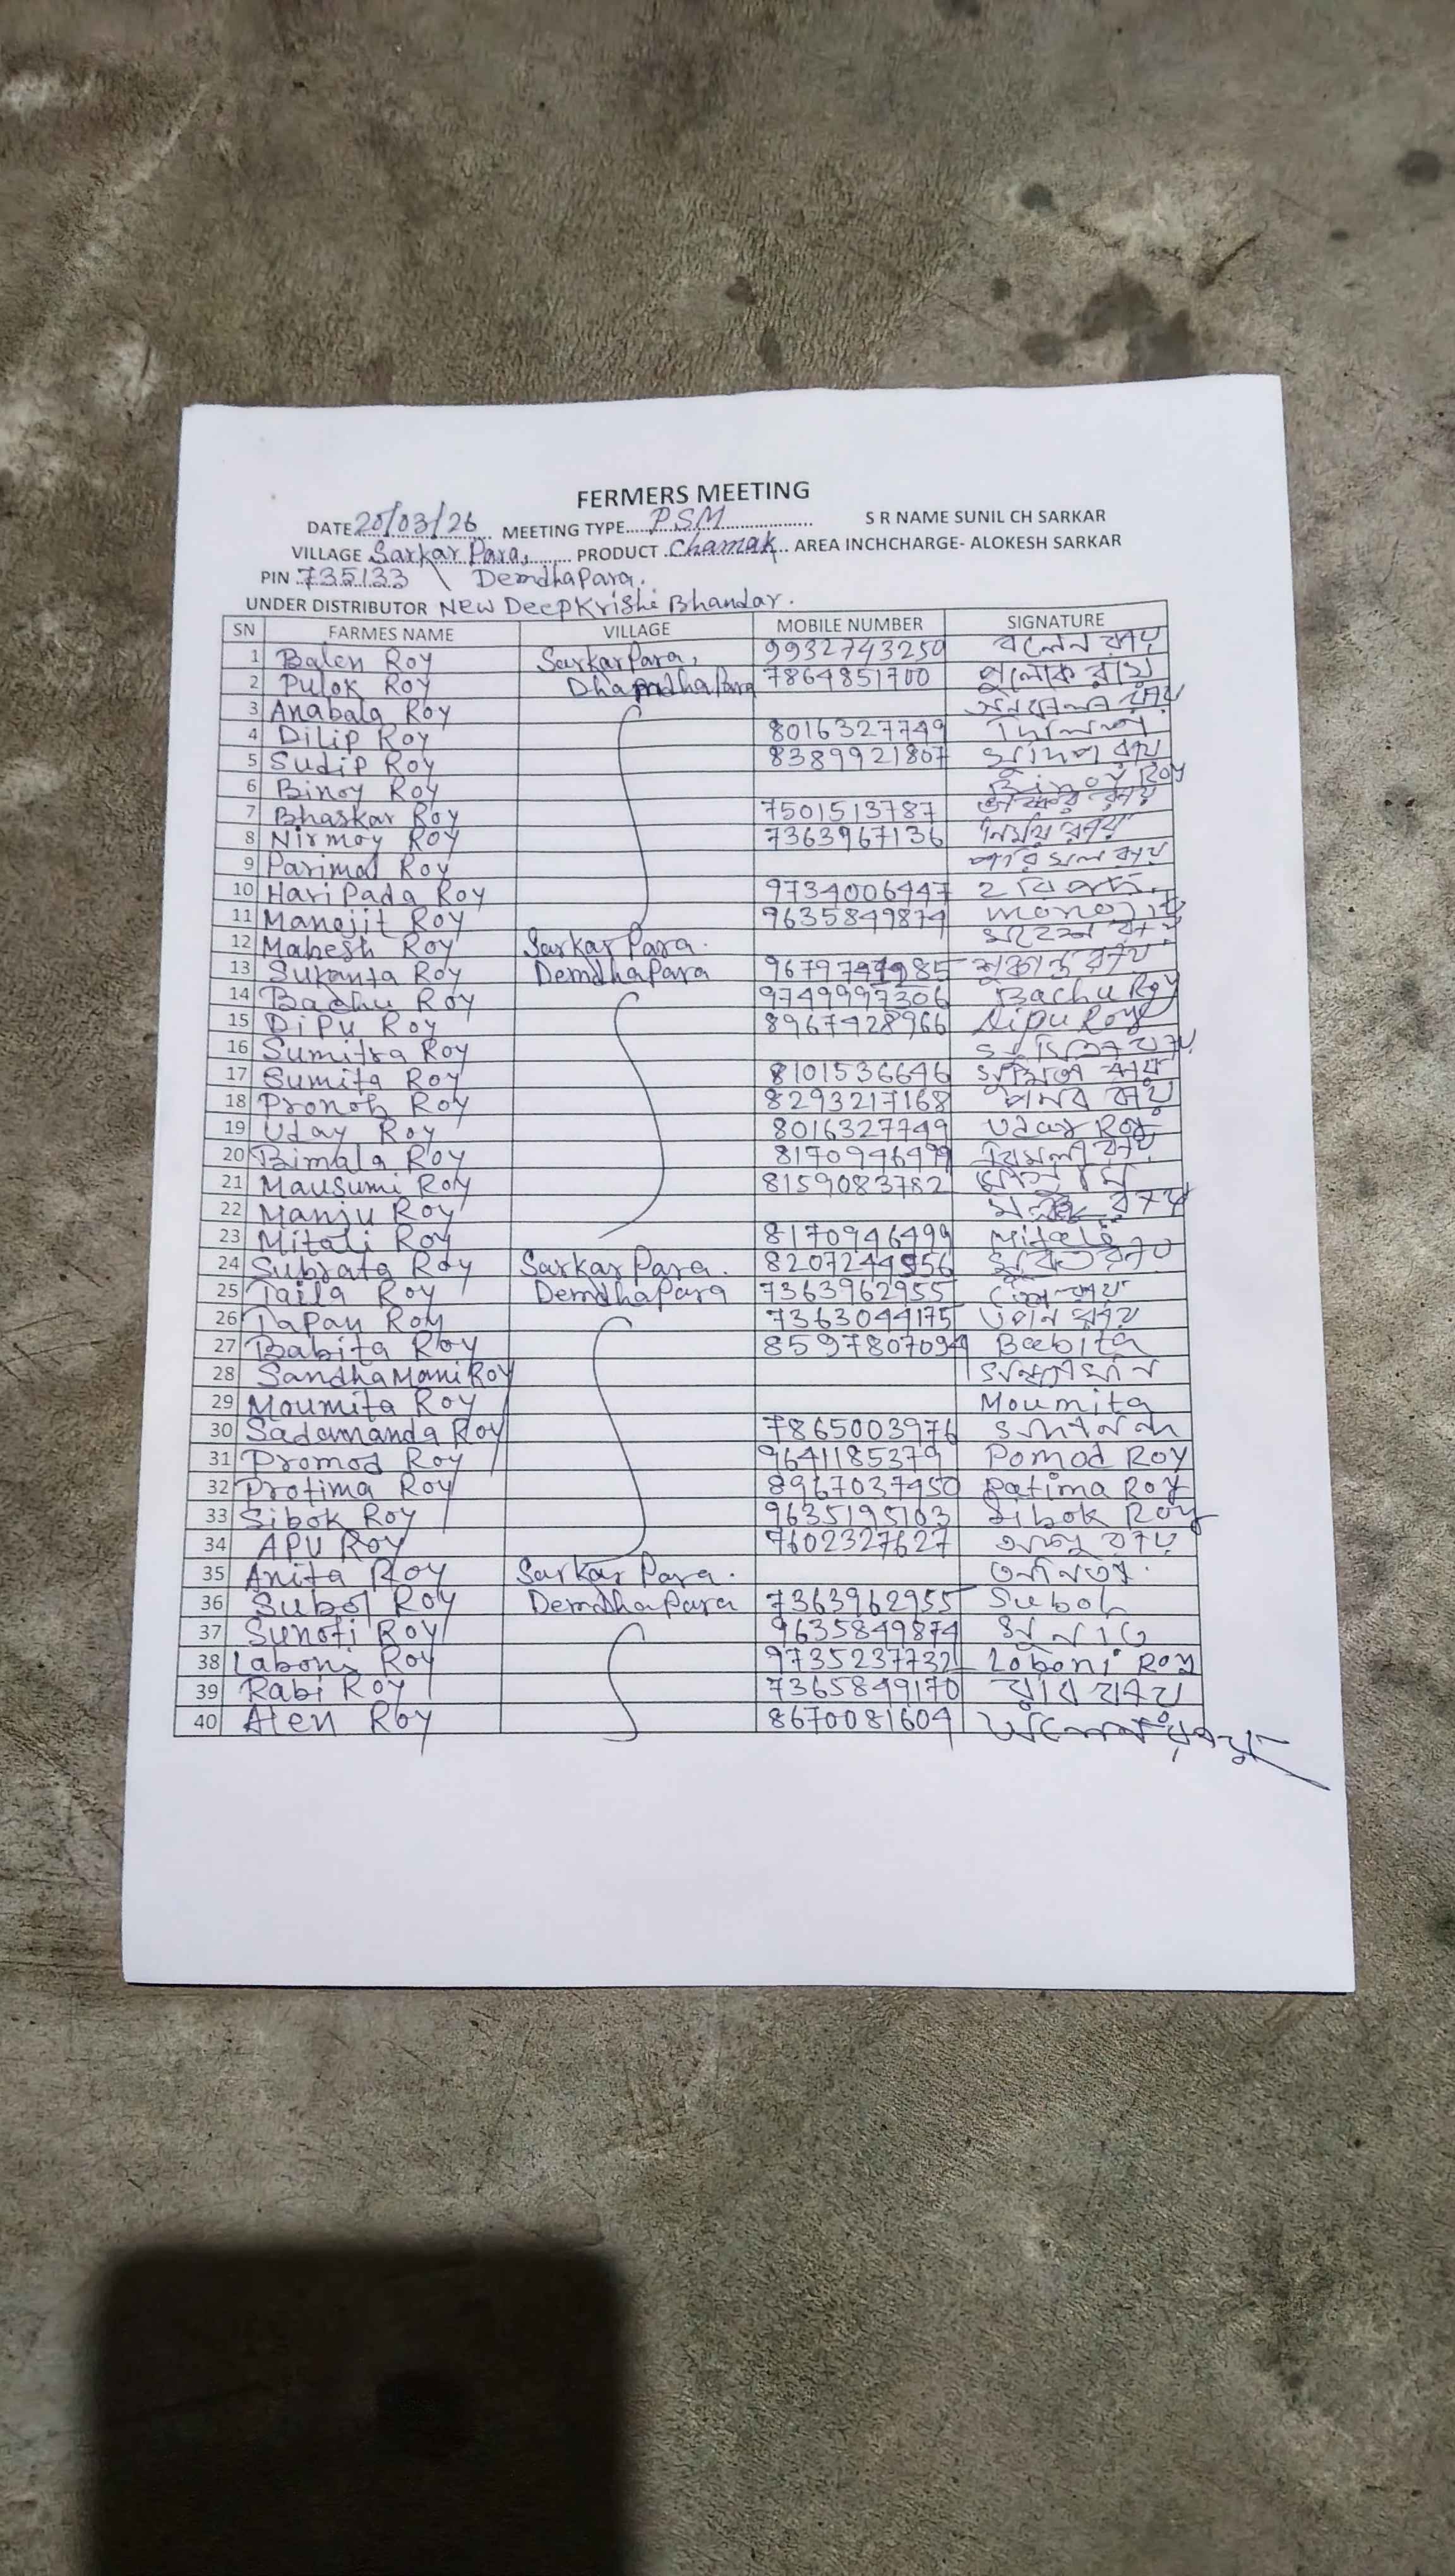 FERMERS MEETING
DATE 20/03/26 MEETING TYPE PSM S R NAME SUNIL CH SARKAR
VILLAGE Sarkar Para, PRODUCT Chamak AREA INCHCHARGE- ALOKESH SARKAR
PIN 735133 \ DemdhaPara.
UNDER DISTRIBUTOR New DeepKrishi Bhandar.
SN FARMES NAME VILLAGE MOBILE NUMBER SIGNATURE
1 Balen Roy SarkarPara, 9932743250 বলেন রায়
2 Pulok Roy 7864851700 পুলোক রায়
3 Anabala Roy
4 Dilip Roy 8016327749 দিলিপ
5 Sudip Roy 8389921807 সুদিপ রায়
6 Binoy Roy Binoy Roy
7 Bhaskar Roy 7501513787 ভাস্কর রায়
8 Nirmoy Roy 7363967136 নির্ময় রায়
9 Parimal Roy পরিমল রায়
10 Hari Pada Roy 9734006447
11 Manojit Roy 9635849874 monojit
12 Mahesh Roy Sarkar Para. মহেশ রায়
13 Sukanta Roy DemdhaPara সুকান্ত রায়
14 Bachu Roy 9749997306 Bachu Roy
15 Dipu Roy 8967428966 Dipu Roy
16 Sumitra Roy
17 Sumita Roy 8101536646 সুমিতা রায়
18 Pronob Roy 8293217168 পনব রায়
19 Uday Roy 8016327749 Uday Roy
20 Bimala Roy 8170946499 বিমলা রায়
21 Mausumi Roy 8159083782
22 Manju Roy
23 Mitali Roy 8170946499 Mitali
24 Subrata Roy SarkarPara. 8207244956
25 Taila Roy DemdhaPara 7363962955
26 Tapan Roy 7363044175 তপন রায়
27 Babita Roy 8597807094 Babita
28 SandhaMani Roy
29 Moumita Roy Moumita
30 Sadamanda Roy 7865003976
31 Promod Roy 9641185379 Pomod Roy
32 Protima Roy 8967037450 Patima Roy
33 Sibok Roy 9635195103 Sibok Roy
34 APU Roy 7602327627 অপু রায়
35 Anita Roy Sarkar Para.
36 Subol Roy DemdhaPara 7363962955 Subol
37 Sunoti Roy 9635849874
38 Laboni Roy 9735237732 Loboni Roy
39 Rabi Roy 7365849170
40 Alen Roy 8670081604